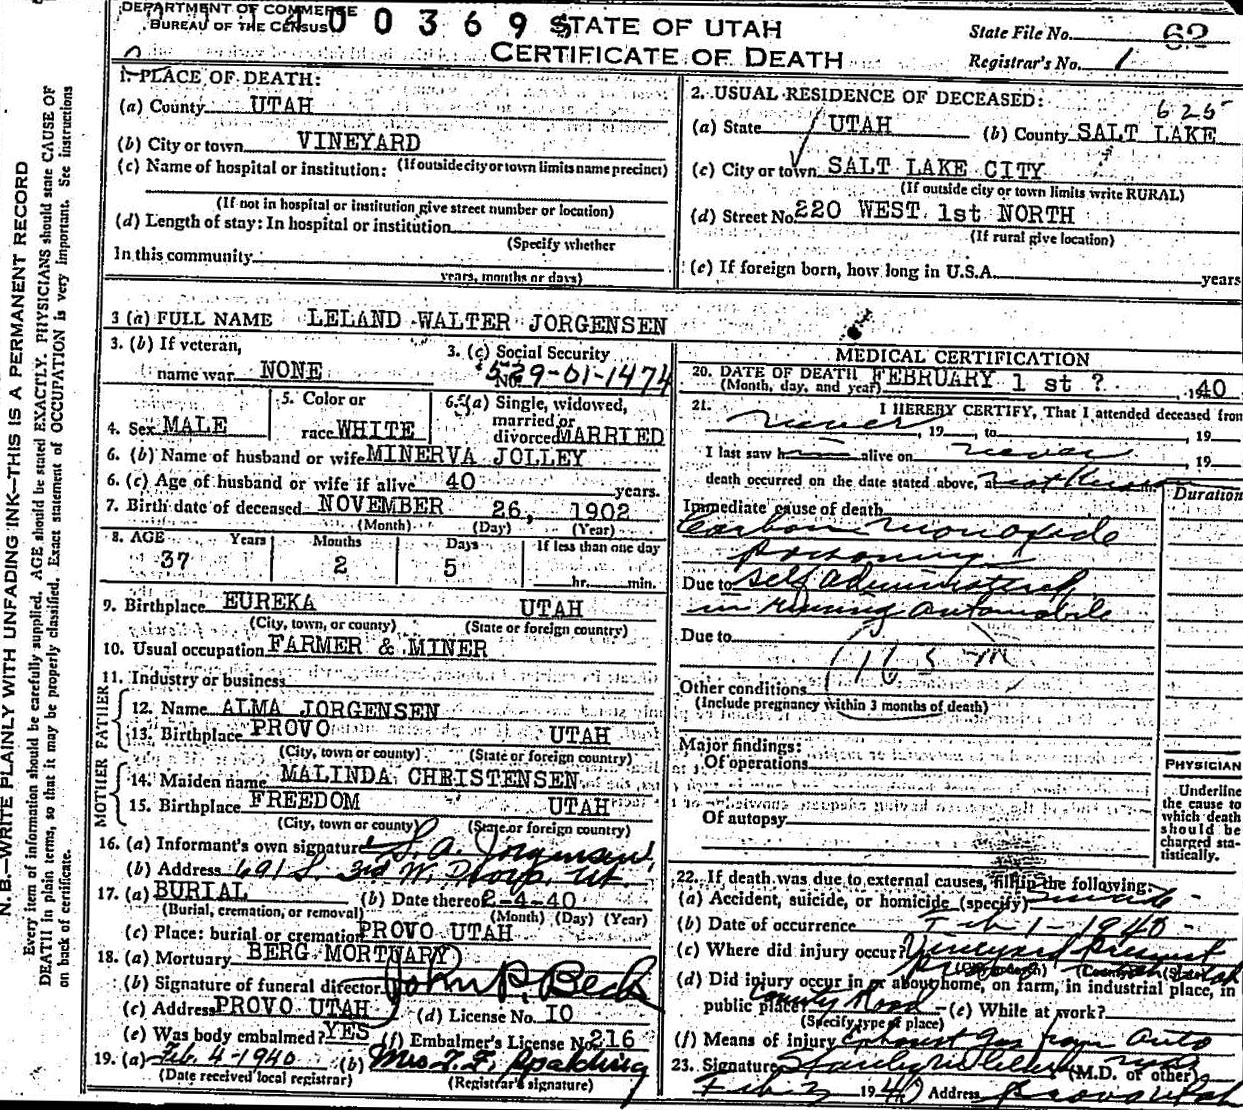 DEPARTMENT OF COMMERCE
BUREAU OF THE CENSUS
0 0 3 6 9
STATE OF UTAH
CERTIFICATE OF DEATH
State File No. 62
Registrar's No. 1
1. PLACE OF DEATH:
(a) County UTAH
(b) City or town VINEYARD
(c) Name of hospital or institution: (If outside city or town limits name precinct)
(If not in hospital or institution give street number or location)
(d) Length of stay: In hospital or institution
(Specify whether
In this community
years, months or days)
2. USUAL RESIDENCE OF DECEASED:
625
(a) State UTAH (b) County SALT LAKE
(c) City or town SALT LAKE CITY
(If outside city or town limits write RURAL)
(d) Street No. 220 WEST 1st NORTH
(If rural give location)
(e) If foreign born, how long in U.S.A. years
3 (a) FULL NAME LELAND WALTER JORGENSEN
3. (b) If veteran,
name war NONE
3. (c) Social Security
No. 529-01-1474
4. Sex MALE
5. Color or
race WHITE
6. (a) Single, widowed,
married or
divorced MARRIED
6. (b) Name of husband or wife MINERVA JOLLEY
6. (c) Age of husband or wife if alive 40 years.
7. Birth date of deceased NOVEMBER 26, 1902
(Month) (Day) (Year)
8. AGE Years Months Days If less than one day
37 2 5 hr. min.
9. Birthplace EUREKA UTAH
(City, town, or county) (State or foreign country)
10. Usual occupation FARMER & MINER
11. Industry or business
FATHER
12. Name ALMA JORGENSEN
13. Birthplace PROVO UTAH
(City, town or county) (State or foreign country)
MOTHER
14. Maiden name MALINDA CHRISTENSEN
15. Birthplace FREEDOM UTAH
(City, town or county) (State or foreign country)
16. (a) Informant's own signature L. A. Jorgensen
(b) Address 691 S. 3rd W. Provo, Ut.
17. (a) BURIAL (b) Date thereof 2-4-40
(Burial, cremation, or removal) (Month) (Day) (Year)
(c) Place: burial or cremation PROVO UTAH
18. (a) Mortuary BERG MORTUARY
(b) Signature of funeral director John P. Beck
(c) Address PROVO UTAH (d) License No. 10
(e) Was body embalmed? YES (f) Embalmer's License No. 216
19. (a) Feb. 4-1940 (b) Mrs. Spalding
(Date received local registrar) (Registrar's signature)
MEDICAL CERTIFICATION
20. DATE OF DEATH FEBRUARY 1 st ? , 1940
(Month, day, and year)
21. I HEREBY CERTIFY, That I attended deceased from
never , 19 , to , 19
I last saw h alive on never , 19
death occurred on the date stated above, at
Duration
Immediate cause of death
Carbon monoxide
poisoning
Due to self administered
in running automobile
Due to
163
Other conditions
(Include pregnancy within 3 months of death)
Major findings:
Of operations
Of autopsy
PHYSICIAN
Underline
the cause to
which death
should be
charged sta-
tistically.
22. If death was due to external causes, fill in the following:
(a) Accident, suicide, or homicide (specify) Suicide
(b) Date of occurrence Feb 1-1940
(c) Where did injury occur? Vineyard Precinct
(d) Did injury occur in or about home, on farm, in industrial place, in
public place? County Road (e) While at work?
(Specify type of place)
(f) Means of injury Exhaust Gas from Auto
23. Signature (M.D. or other)
1940 Address Provo Utah
N. B.—WRITE PLAINLY WITH UNFADING INK—THIS IS A PERMANENT RECORD
Every item of information should be carefully supplied. AGE should be stated EXACTLY. PHYSICIANS should state CAUSE OF
DEATH in plain terms, so that it may be properly classified. Exact statement of OCCUPATION is very important. See instructions
on back of certificate.